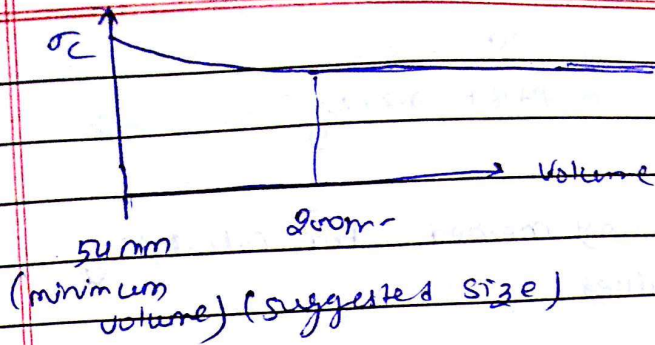 σc
Volume
54 mm
200mm
(minimum
volume) (suggested size)